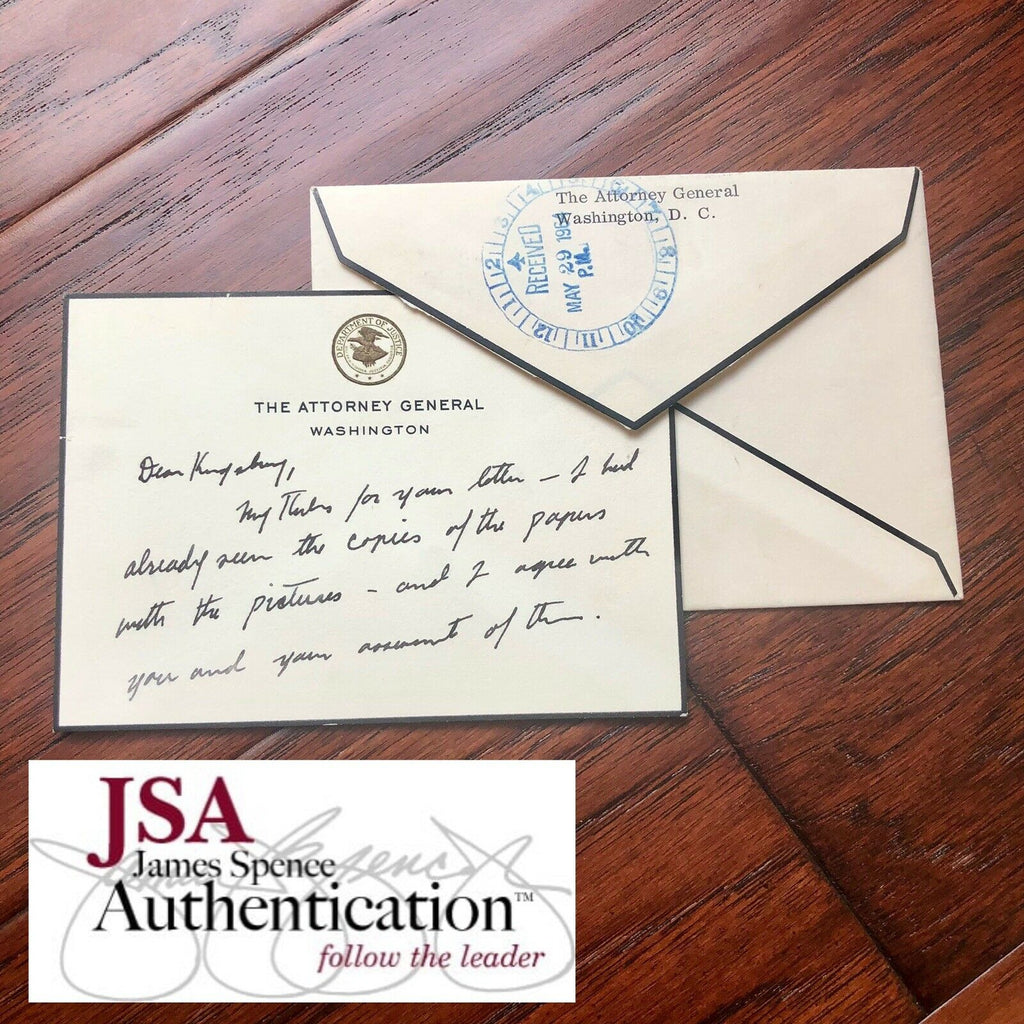 The Attorney General
Washington, D. C.
RECEIVED
MAY 29 196
P.M.
DEPARTMENT OF JUSTICE
THE ATTORNEY GENERAL
WASHINGTON
Dear Kingsbury,
My Thanks for your letter – I had
already seen the copies of the papers
with the pictures – and I agree with
you and your assessment of them.
JSA
James Spence
Authentication™
follow the leader